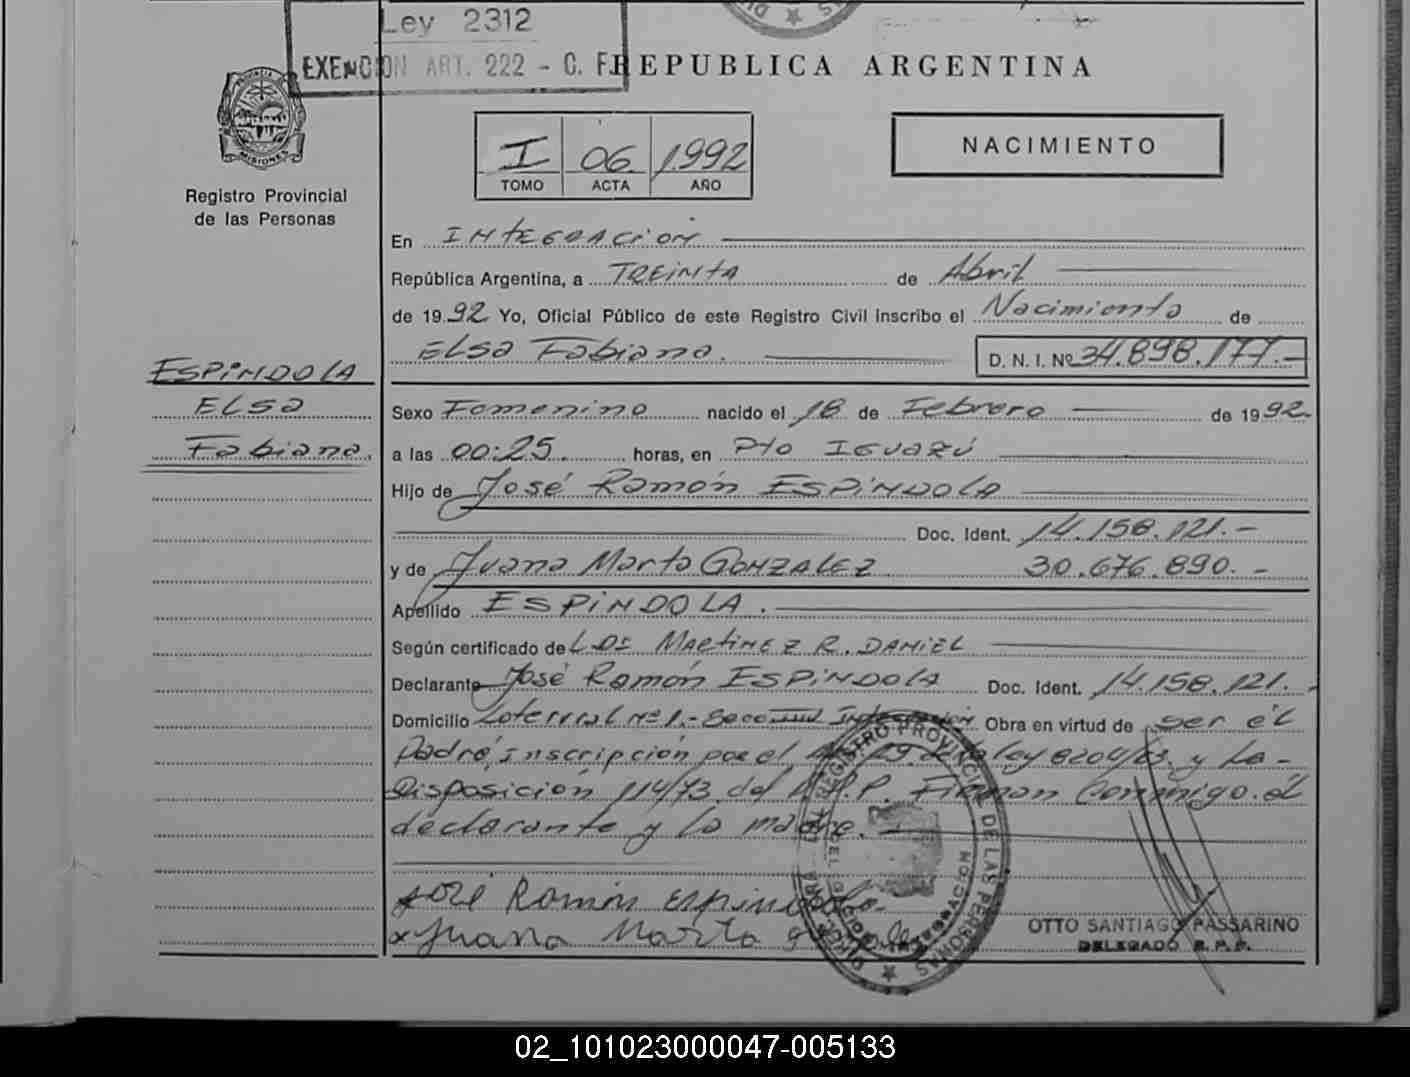 Ley 2312
EXENCION ART. 222 - C. F.
REPUBLICA ARGENTINA
PROVINCIA DE MISIONES
Registro Provincial
de las Personas
I 06 1992
TOMO ACTA AÑO
NACIMIENTO
En INTEGRACION
República Argentina, a TREINTA de Abril
de 1992 Yo, Oficial Público de este Registro Civil inscribo el Nacimiento de
ELSA Fabiana. D. N. I. Nº 34.898.177.-
ESPINDOLA
ELSA
Fabiana.
Sexo Femenino nacido el 18 de Febrero de 1992.
a las 00:25. horas, en Pto IGUAZÚ
Hijo de José Ramón ESPINDOLA
Doc. Ident. 14.158.121.-
y de Juana Marta GONZALEZ 30.676.890.-
Apellido ESPINDOLA.
Según certificado de MARTINEZ R. DANIEL
Declarante José Ramón ESPINDOLA Doc. Ident. 14.158.121.-
Domicilio Lote Nº 1.- Integración Obra en virtud de ser él
Padre, inscripción por el 29 de la ley 8204/63. y La -
Disposición 114/73 del R.P.P. Firman Conmigo el
declarante y la madre.
José Ramón Espindola
x Juana Marta
REGISTRO PROVINCIAL DE LAS PERSONAS
OTTO SANTIAGO PASSARINO
DELEGADO R.P.P.
02_101023000047-005133